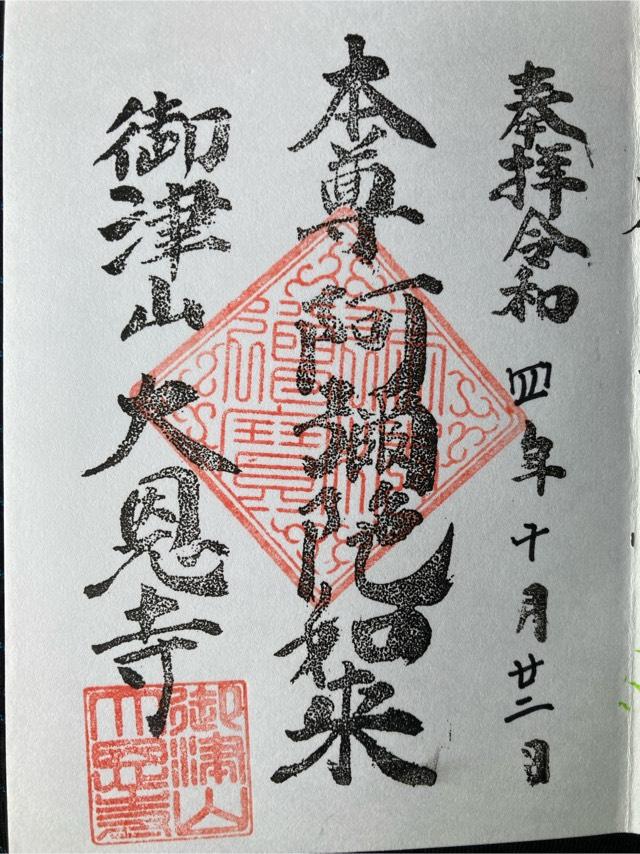 奉拝令和四年十月廿二日
本尊阿彌陀如来
御津山大恩寺
佛法僧寶
御津山
大恩寺